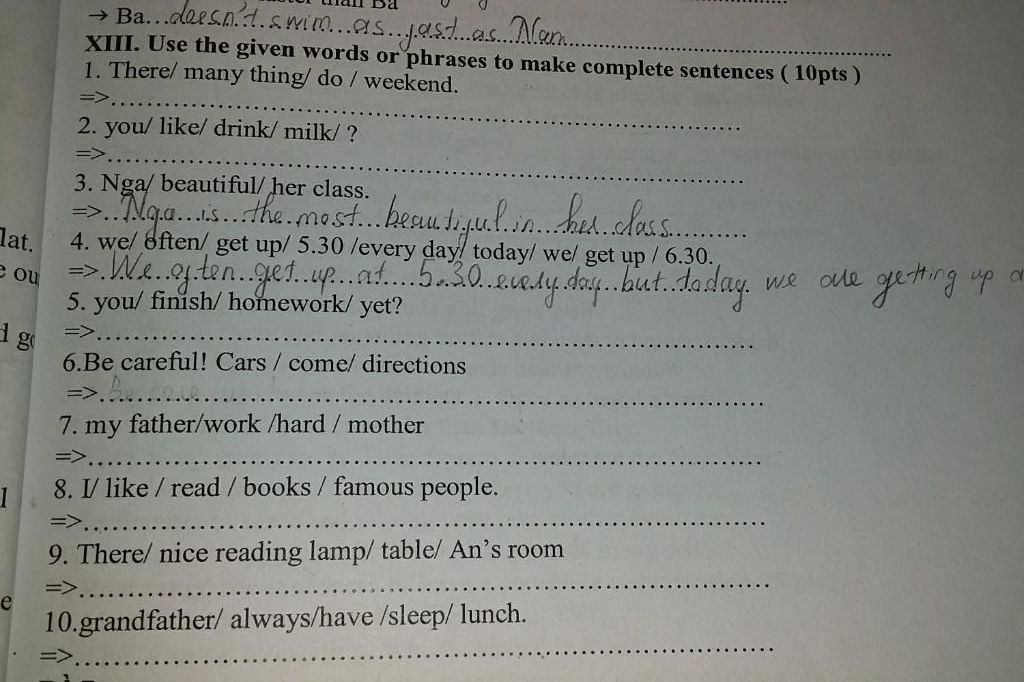 Ba
→ Ba...doesn't.swim...as..fast..as..Nam
XIII. Use the given words or phrases to make complete sentences ( 10pts )
1. There/ many thing/ do / weekend.
=>
2. you/ like/ drink/ milk/ ?
=>
3. Nga/ beautiful/ her class.
=>..Nga...is...the.most...beautiful.in..her.class
lat.
4. we/ often/ get up/ 5.30 /every day/ today/ we/ get up / 6.30.
ou
=>.We.often..get.up..at....5.30.every.day..but..today. we are getting up a
5. you/ finish/ homework/ yet?
=>
6.Be careful! Cars / come/ directions
=>.Be care
7. my father/work /hard / mother
=>
8. I/ like / read / books / famous people.
=>
9. There/ nice reading lamp/ table/ An's room
=>
e
10.grandfather/ always/have /sleep/ lunch.
=>